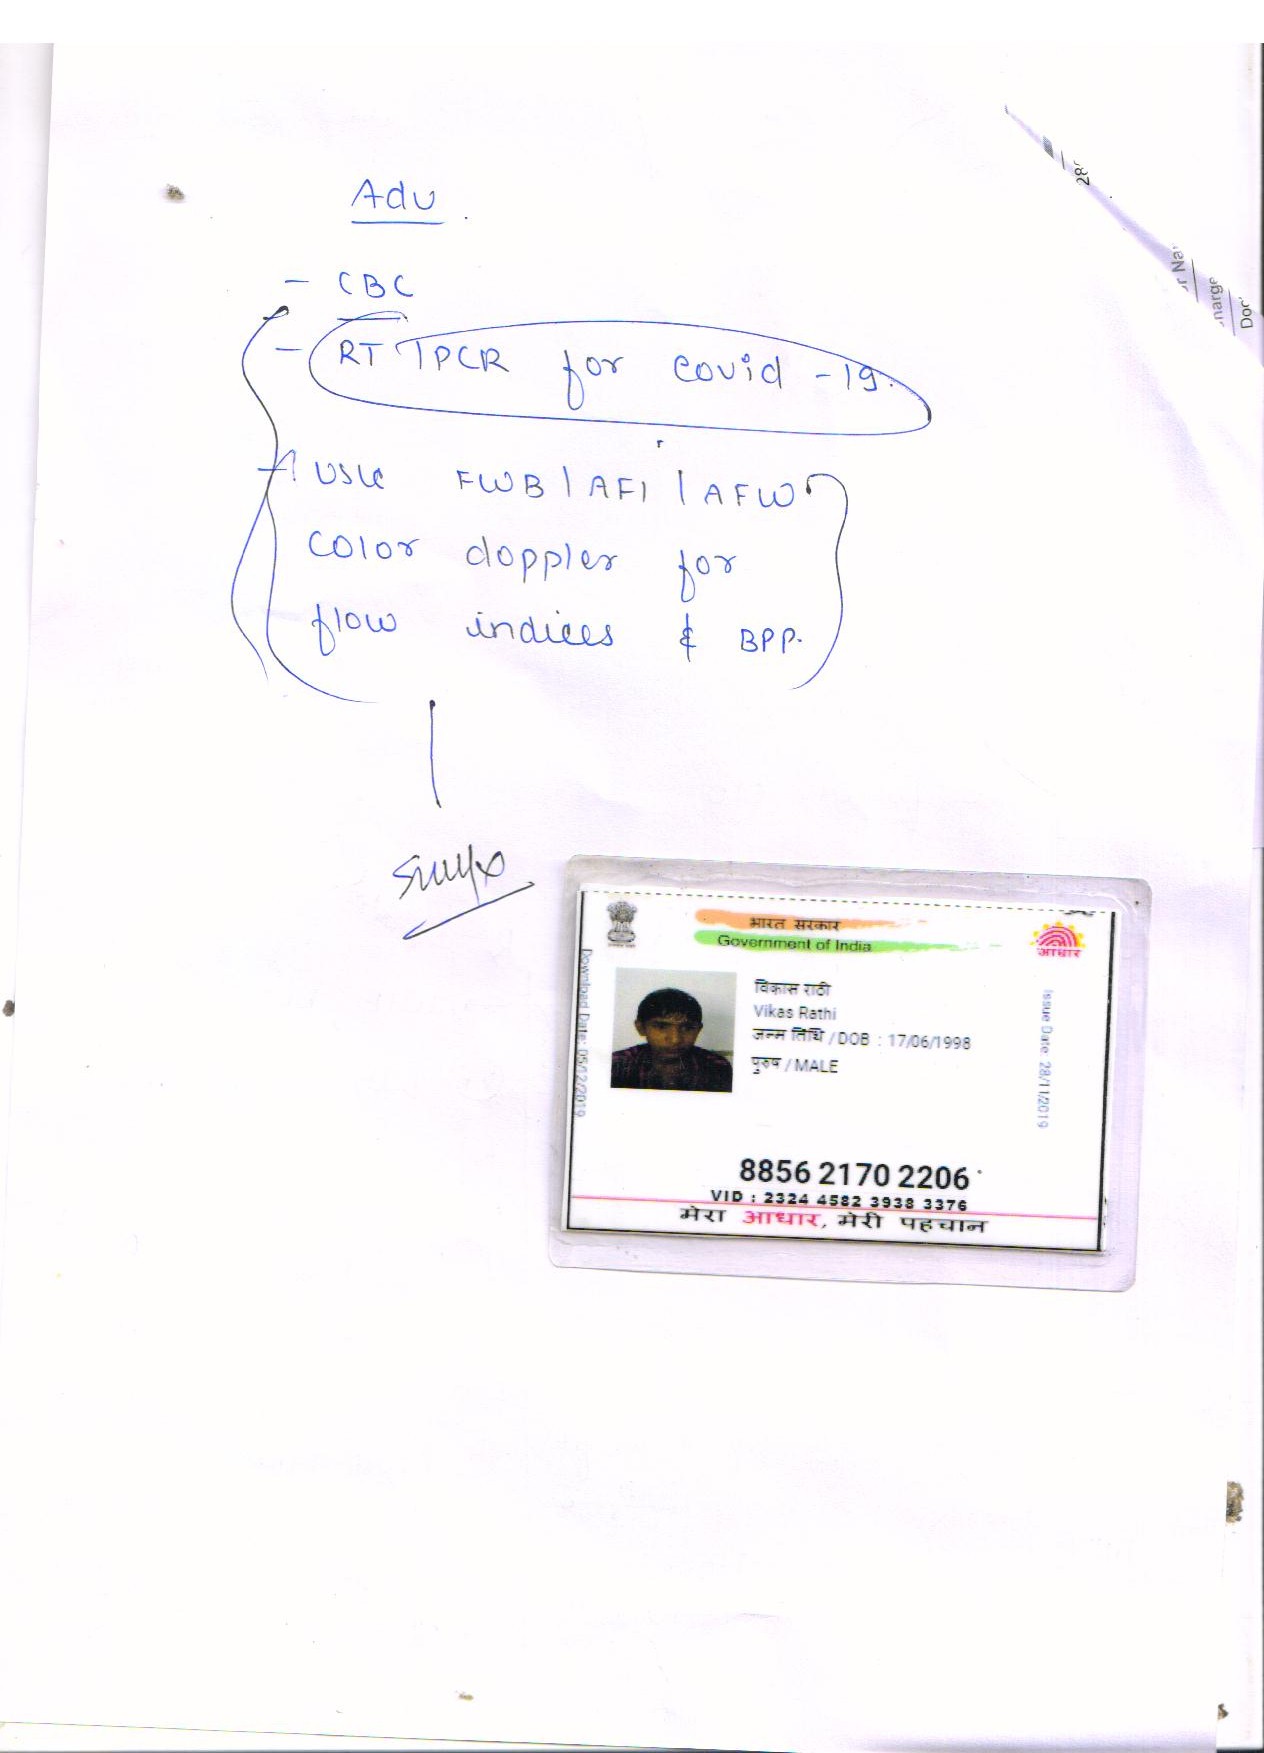 Adv
- CBC
- RT | PCR for covid -19.
- USG FWB | AFI | AFW
color doppler for
flow indices & BPP.
भारत सरकार
Government of India
आधार
विकास राठी
Vikas Rathi
जन्म तिथि / DOB : 17/06/1998
पुरुष / MALE
Download Date: 05/12/2019
Issue Date: 28/11/2019
8856 2170 2206
VID : 2324 4582 3938 3376
मेरा आधार, मेरी पहचान